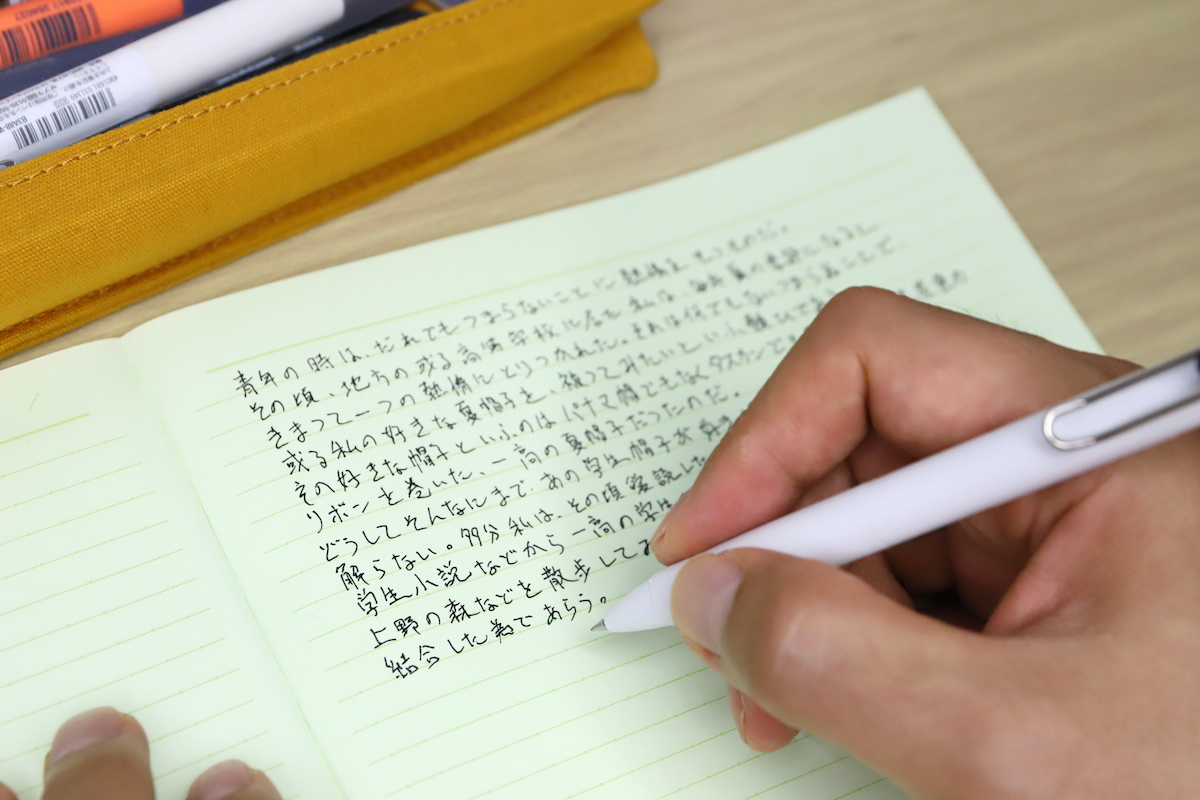 青年の時は、だれでもつまらないことに熱情をもつものだ。
その頃、地方の或る高等学校に居た私は、毎年夏の季節になると
きまって一つの熱情にとりつかれた。それは何でもないつまらぬことで
或る私の好きな夏帽子を、被ってみたいといふ願ひであ
その好きな帽子といふのはパナマ帽でもなくタスカンで
リボンを巻いた、一高の夏帽子だったのだ。
どうしてそんなにまで、あの学生帽子が好き
解らない。多分私は、その頃愛読した
学生小説などから一高の学生
上野の森などを散歩して
結合した為であらう。